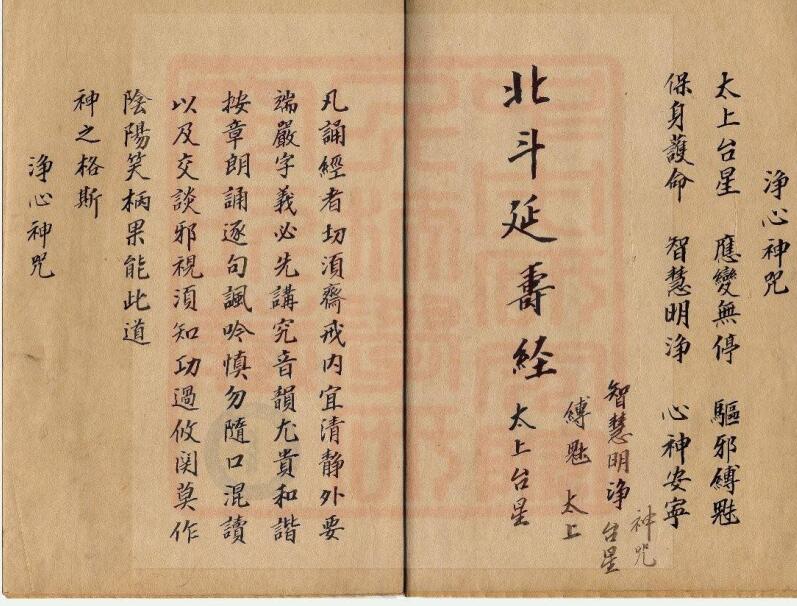 浄心神咒
太上台星　應變無停　驅邪縛魅
保身護命　智慧明浄　心神安寜
神咒
智慧明浄　台星
縛魅　太上
北斗延壽経　太上台星
凡誦經者切須齋戒内宜清静外要
端嚴字義必先講究音韻尤貴和諧
按章朗誦逐句諷吟慎勿隨口混讀
以及交談邪視須知功過攸関莫作
陰陽笑柄果能此道
神之格斯
浄心神咒